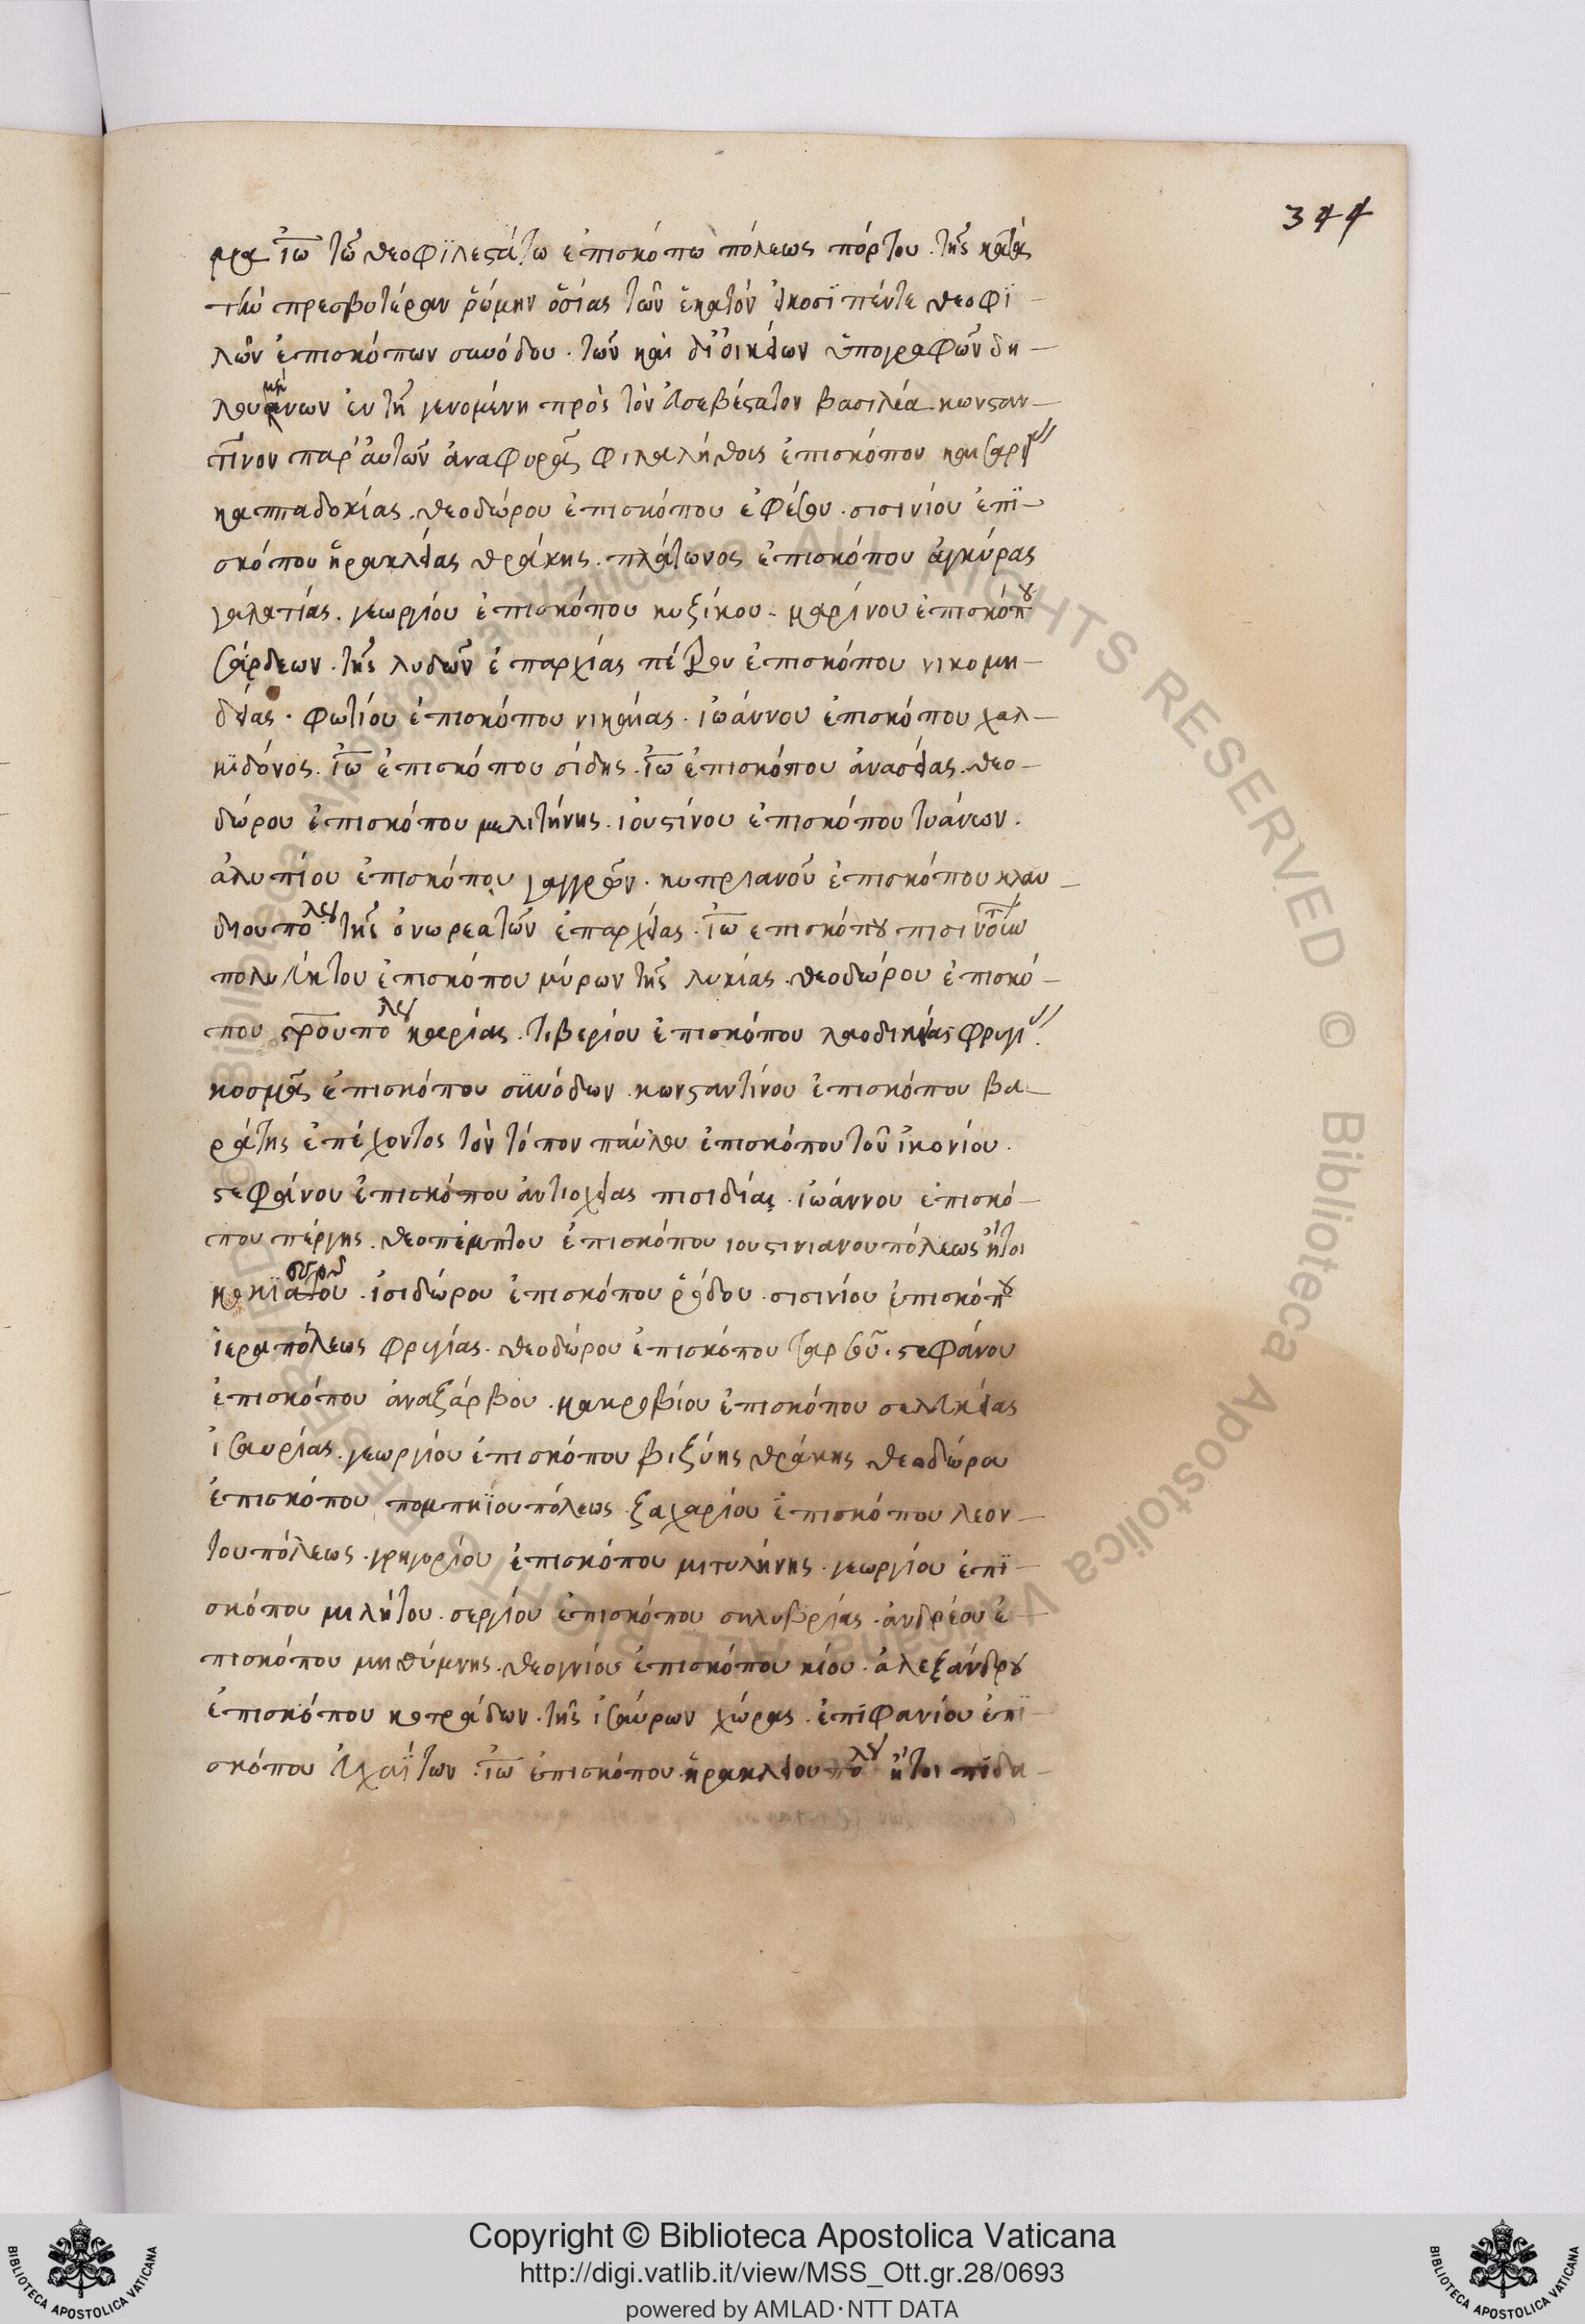 344
ρρα ἰω τῶ θεοφϊλεστάτω ἐπισκόπω πόλεως πόρτου. τῆς κατὰ
τὴν πρεσβυτέραν ῥώμην ὁσίας τῶν ἑκατὸν εἰκοσϊπέντε θεοφϊ
λῶν ἐπισκόπων συνόδου. τῶν καὶ δι' οἰκείων ὑπογραφῶν δη
ἐν τῆ γενομένη πρὸς τὸν εὐσεβέστατον βασιλέα κωνσταν
τῖνον παρ' αὐτῶν ἀναφορᾶς φιλαλήθοις ἐπισκόπου καισαρείας
καππαδοκίας. θεοδώρου ἐπισκόπου ἐφέσου. σισινίου ἐπϊ
σκόπου ἡρακλείας θράκης. πλάτωνος ἐπισκόπου ἀγκύρας
γαλατίας. γεωργίου ἐπισκόπου κυζίκου. μαρίνου ἐπισκόπου
σάρδεων. τῆς λυδῶν ἐπαρχίας πέτρου ἐπισκόπου νικομη
δείας. φωτίου ἐπισκόπου νικαίας. ἰωάννου ἐπισκόπου χαλ
κϊδόνος. ἰω ἐπισκόπου σίδης. ἰω ἐπισκόπου ἀνασείας. θεο
δώρου ἐπισκόπου μελιτήνης. ἰουστίνου ἐπισκόπου τυάνεων.
ἀλυπίου ἐπισκόπου γαγγρῶν. κυπριανοῦ ἐπισκόπου κλαυ
διουπόλεως τῆς ὀνωρεατῶν ἐπαρχείας. ἰω ἐπισκόπου
πολυεύκτου ἐπισκόπου μύρων τῆς λυκίας. θεοδώρου ἐπισκό
που καρίας. τιβερίου ἐπισκόπου λαοδικείας φρυγίας.
κοσμᾶς ἐπισκόπου σϋνόδων. κωνσταντίνου ἐπισκόπου βα
ράτης ἐπέχοντος τὸν τόπον παύλου ἐπισκόπου τοῦ ἰκονίου.
στεφάνου ἐπισκόπου ἀντιοχείας πισιδίας. ἰωάννου ἐπισκό
που πέργης. θεοπέμπτου ἐπισκόπου ιουστινιανουπόλεως ἤτοι
ἰσιδώρου ἐπισκόπου ῥόδου. σισινίου ἐπισκόπου
ἱεραπόλεως φρυγίας. θεοδώρου ἐπισκόπου ταρσοῦ. στεφάνου
ἐπισκόπου ἀναζάρβου. μακροβίου ἐπισκόπου σελευκείας
ἰσαυρίας. γεωργίου ἐπισκόπου βιζύης θράκης θεοδώρου
ἐπισκόπου πομπηϊουπόλεως. ζαχαρίου ἐπισκόπου λεον
τουπόλεως. γρηγορίου ἐπισκόπου μιτυλήνης. γεωργίου ἐπϊ
σκόπου μιλήτου. σεργίου ἐπισκόπου σηλυβρίας. ἀνδρέου ἐ
πισκόπου μηθύμνης. θεογνίου ἐπισκόπου κίου. ἀλεξάνδρου
ἐπισκόπου κοτράδων. τῆς ἰσαύρων χώρας. ἐπιφανίου ἐπϊ
σκόπου εὐχαΐτων. ἰω ἐπισκόπου ἡρακλείουπόλεως ἤτοι πιδα
Copyright © Biblioteca Apostolica Vaticana
http://digi.vatlib.it/view/MSS_Ott.gr.28/0693
powered by AMLAD·NTT DATA
© Biblioteca Apostolica Vaticana ALL RIGHTS RESERVED
BIBLIOTECA APOSTOLICA VATICANA
BIBLIOTECA APOSTOLICA VATICANA